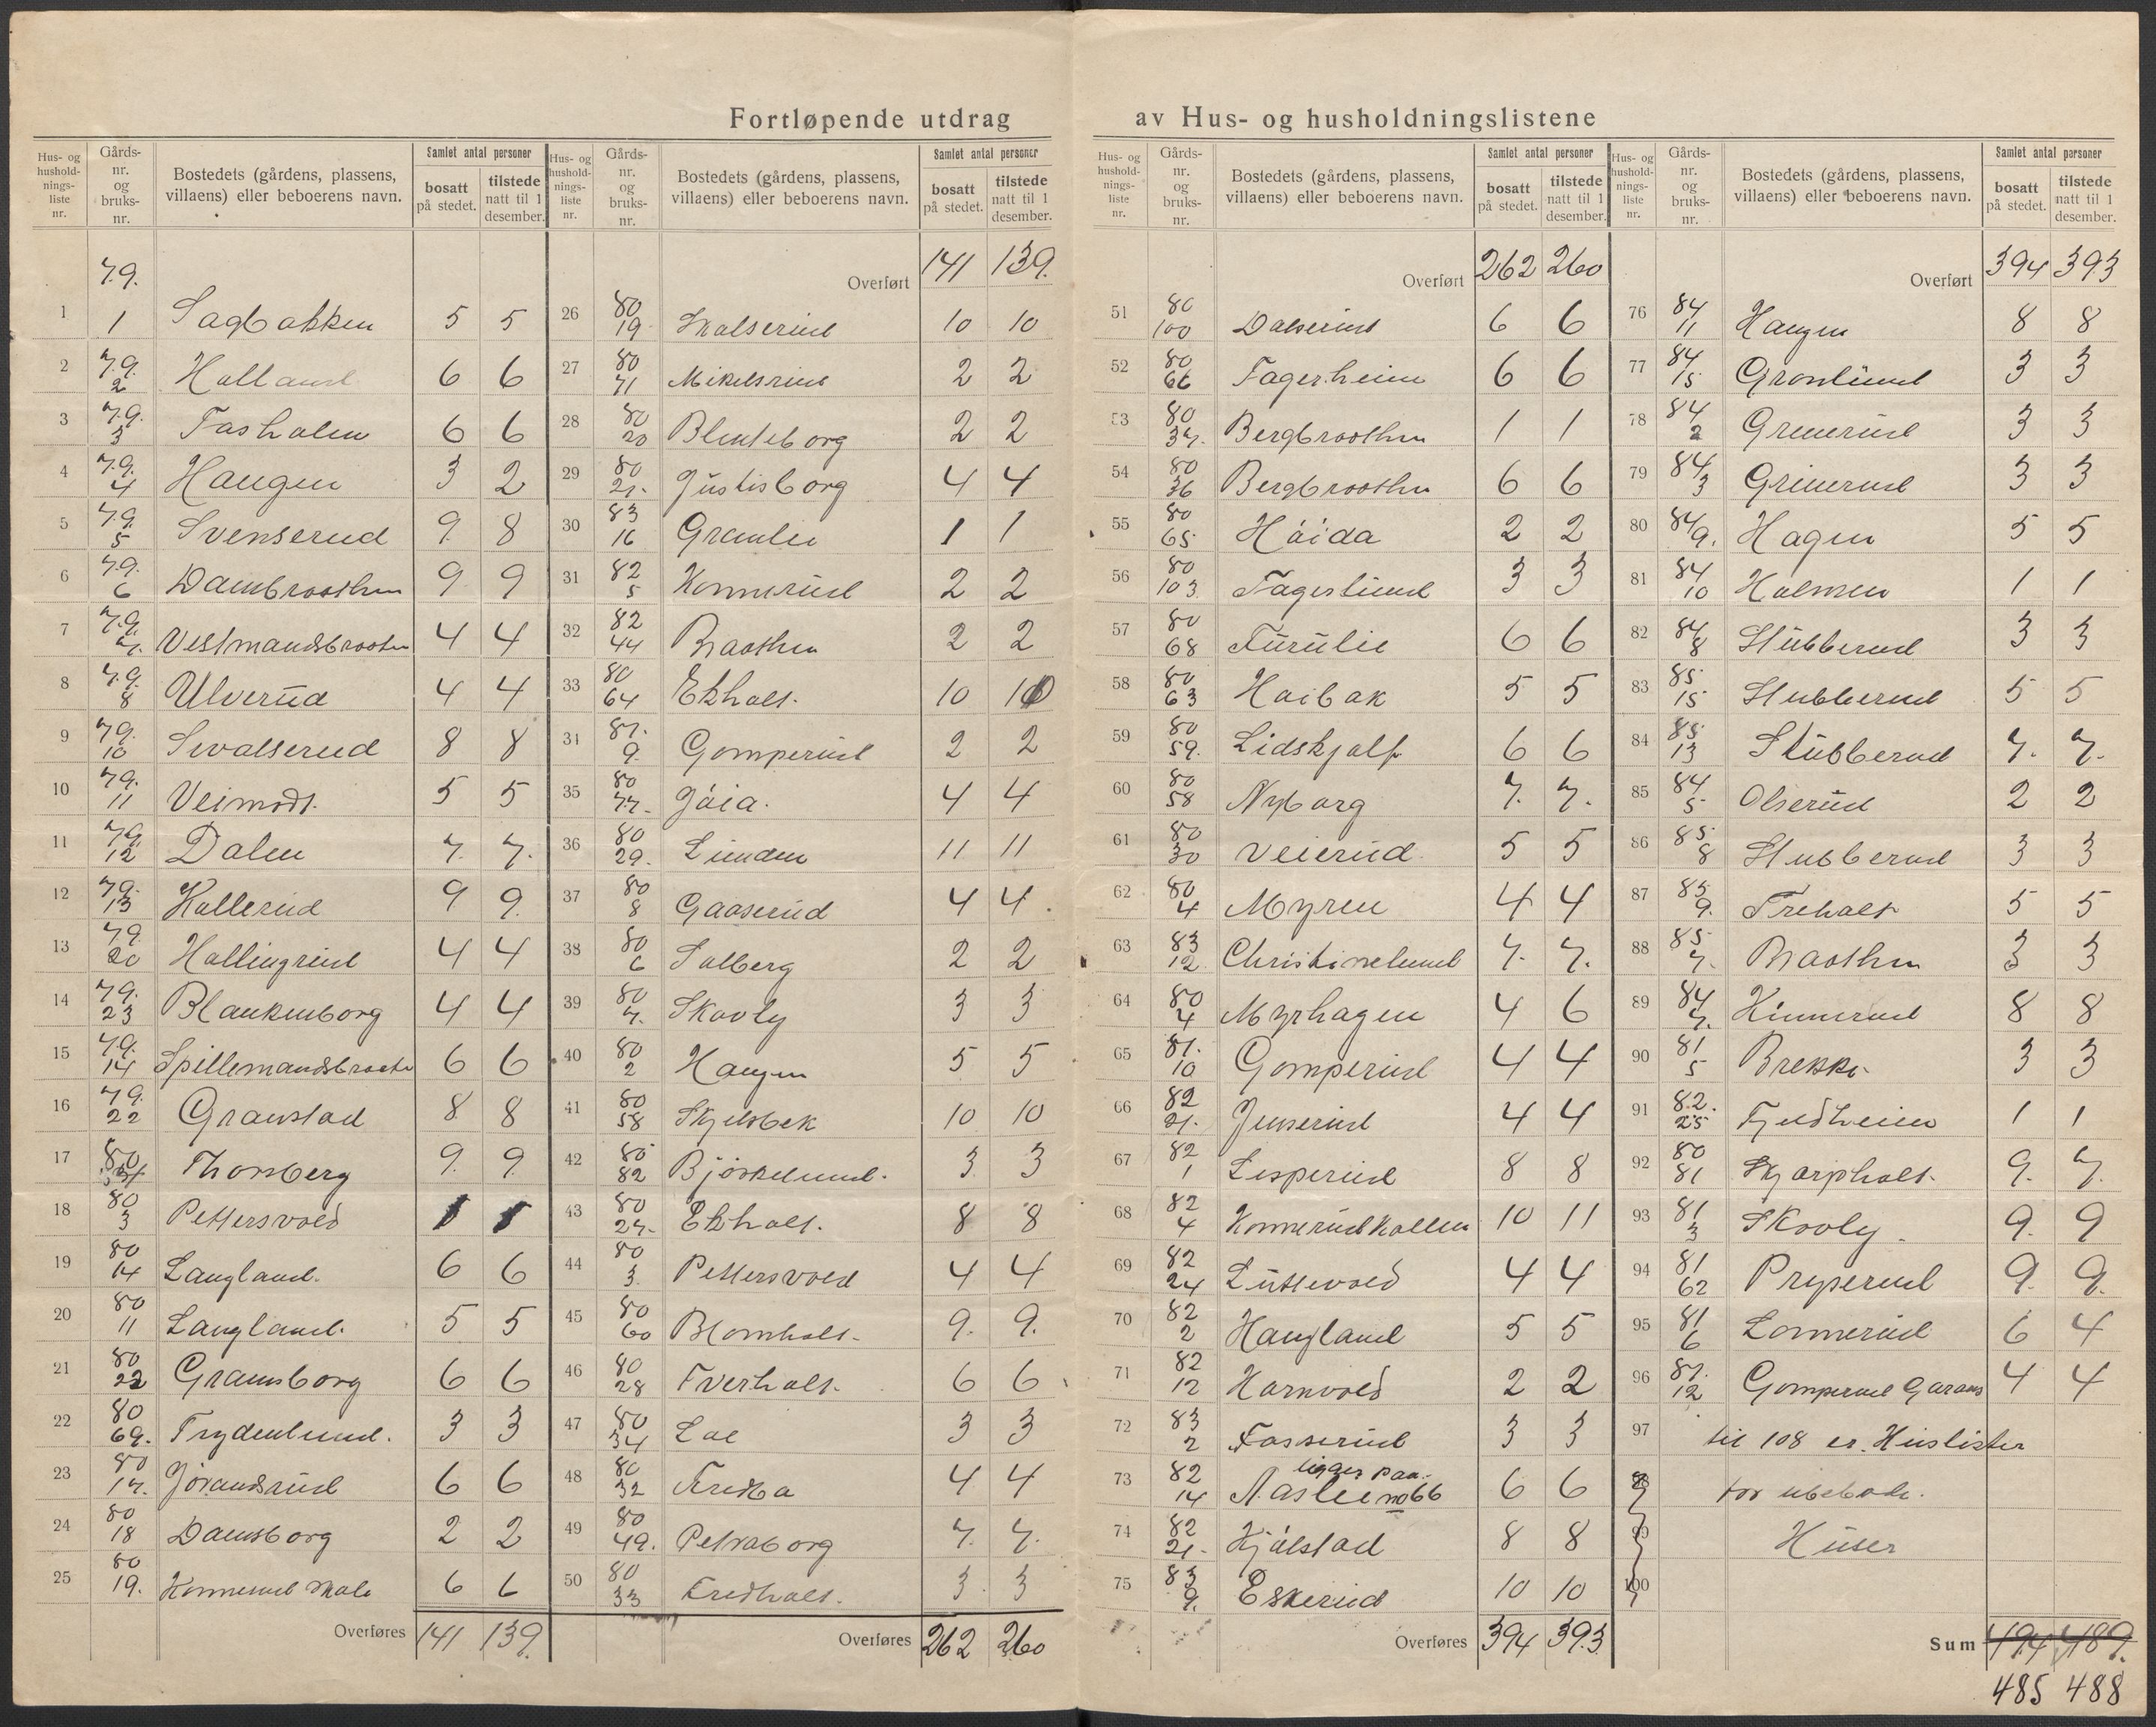 Fortløpende utdrag av Hus- og husholdningslistene
Hus- og husholdnings-liste nr. | Gårds-nr. og bruks-nr. | Bostedets (gårdens, plassens, villaens) eller beboerens navn. | Samlet antal personer: bosatt på stedet. | tilstede natt til 1 desember.
1 | 79. 1 | Sagbakken | 5 | 5
2 | 79. 2 | Halland | 6 | 6
3 | 79. 3 | Fasholen | 6 | 6
4 | 79. 4 | Haugen | 3 | 2
5 | 79. 5 | Svenserud | 9 | 8
6 | 79. 6 | Dambraathen | 9 | 9
7 | 79. 7. | Vestmandsbraaten | 4 | 4
8 | 79. 8 | Ulverud | 4 | 4
9 | 79. 10 | Sivalserud | 8 | 8
10 | 79. 11 | Veimodt. | 5 | 5
11 | 79. 12 | Dalen | 7. | 7.
12 | 79. 13 | Kallerud | 9 | 9.
13 | 79. 20 | Hallingrud | 4 | 4
14 | 79. 23 | Blankenborg | 4 | 4
15 | 79. 14 | Spillemandsbraate | 6 | 6
16 | 79. 22 | Granstad | 8 | 8
17 | 80 | Thorsberg | 9. | 9.
18 | 80 3 | Pettersvold
19 | 80 14 | Langland. | 6 | 6
20 | 80 11 | Langland. | 5 | 5
21 | 80 22 | Gramsborg | 6 | 6
22 | 80 69. | Frydenlund. | 3 | 3
23 | 80 17. | Jörandsrud | 6 | 6
24 | 80 18 | Damsborg | 2 | 2
25 | 80 19. | Konnerud skole | 6 | 6
Overføres 141 139.
Hus- og husholdnings-liste nr. | Gårds-nr. og bruks-nr. | Bostedets (gårdens, plassens, villaens) eller beboerens navn. | Samlet antal personer: bosatt på stedet. | tilstede natt til 1 desember.
Overført 141 139.
26 | 80 19 | Skalserud | 10 | 10
27 | 80 71 | Mikelsrud | 2 | 2
28 | 80 20 | Blenteborg | 2 | 2
29 | 80 21. | Justisborg | 4 | 4
30 | 83 16 | Granlie | 1 | 1
31 | 82 5 | Konnerud | 2 | 2
32 | 82 44 | Braathen | 2 | 2
33 | 80 64 | Ekholt. | 10 | 10
34 | 81. 9. | Gomperud | 2 | 2
35 | 80 77. | Jöia. | 4 | 4
36 | 80 29. | Lunden | 11 | 11
37 | 80 8 | Gaaserud | 4 | 4.
38 | 80 6 | Solberg | 2 | 2
39 | 80 7. | Skovly | 3 | 3
40 | 80 2 | Haugen | 5 | 5
41 | 80 58 | Skjelsbek | 10 | 10
42 | 80 82 | Björkelund. | 3 | 3
43 | 80 27. | Ekholt. | 8 | 8
44 | 80 3. | Pettersvold | 4 | 4
45 | 80 60 | Blomholt. | 9. | 9.
46 | 80 28 | Tverholt. | 6 | 6
47 | 80 34 | Loe | 3 | 3
48 | 80 32 | Fredbo | 4 | 4
49 | 80 49. | Petraborg | 7. | 7.
50 | 80 33 | Fredholt. | 3 | 3
Overføres 262 260
Hus- og husholdnings-liste nr. | Gårds-nr. og bruks-nr. | Bostedets (gårdens, plassens, villaens) eller beboerens navn. | Samlet antal personer: bosatt på stedet. | tilstede natt til 1 desember.
Overført 262 260
51 | 80 100 | Dalserud | 6 | 6
52 | 80 66 | Fagerheim | 6 | 6
53 | 80 37. | Bergbraathen | 1 | 1
54 | 80 36 | Bergbraathen | 6 | 6
55 | 80 65 | Höida | 2 | 2
56 | 80 103 | Fagerlund | 3 | 3
57 | 80 68 | Furulie | 6 | 6
58 | 80 63 | Haibak | 5 | 5
59 | 80 59. | Lidskjalf | 6 | 6
60 | 80 58 | Nyborg | 7. | 7.
61 | 80 30 | Veierud | 5 | 5
62 | 80 4 | Myren | 4 | 4
63 | 83 12 | Christinelund | 7. | 7.
64 | 80 4 | Myrhagen | 4 | 6
65 | 81. 10 | Gomperud | 4 | 4
66 | 82 21. | Jenserud | 4 | 4
67 | 82 1 | Lesperud | 8 | 8
68 | 82 4 | Konnerudkollen | 10 | 11
69 | 82 24 | Luttevold | 4 | 4
70 | 82 2 | Haugland | 5 | 5
71 | 82 12 | Hornvold | 2 | 2
72 | 83 2 | Fosserud | 3 | 3
73 | 82 14 | Aaslie ligger paa no 66 | 6 | 6
74 | 82 21. | Kjölstad | 8 | 8
75 | 83 9. | Eskerud | 10 | 10
Overføres 394 393
Hus- og husholdnings-liste nr. | Gårds-nr. og bruks-nr. | Bostedets (gårdens, plassens, villaens) eller beboerens navn. | Samlet antal personer: bosatt på stedet. | tilstede natt til 1 desember.
Overført 394 393
76 | 84 11 | Haugen | 8 | 8
77 | 84 15 | Grønlund | 3 | 3
78 | 84 2 | Gruerud | 3 | 3
79 | 84 3 | Gruerud | 3 | 3
80 | 84 9. | Hagen | 5 | 5
81 | 84 10 | Holmen | 1 | 1
82 | 84 8 | Stubberud | 3 | 3
83 | 85 15 | Stubberud | 5 | 5
84 | 85 13 | Stubberud | 7. | 7.
85 | 84 5 | Olserud | 2 | 2
86 | 85 8 | Stubberud | 3 | 3
87 | 85 9. | Treholt | 5 | 5
88 | 85 7. | Braathen | 3 | 3
89 | 84 7. | Kinnerud | 8 | 8
90 | 81 5 | Brekke | 3 | 3
91 | 82. 25 | Fjeldheim | 1 | 1
92 | 80 81 | Skjarpholt. | 9. | 7.
93 | 81 3 | Skovly | 9. | 9
94 | 81 62 | Pryserud | 9. | 9.
95 | 81 6 | Lonnerud | 6 | 4
96 | 81. 12 | Gomperud Garaas | 4 | 4
97 | til 108 er. Huslister
98 | for ubebode.
99 | Huser
100
Sum 494 489.
485 488